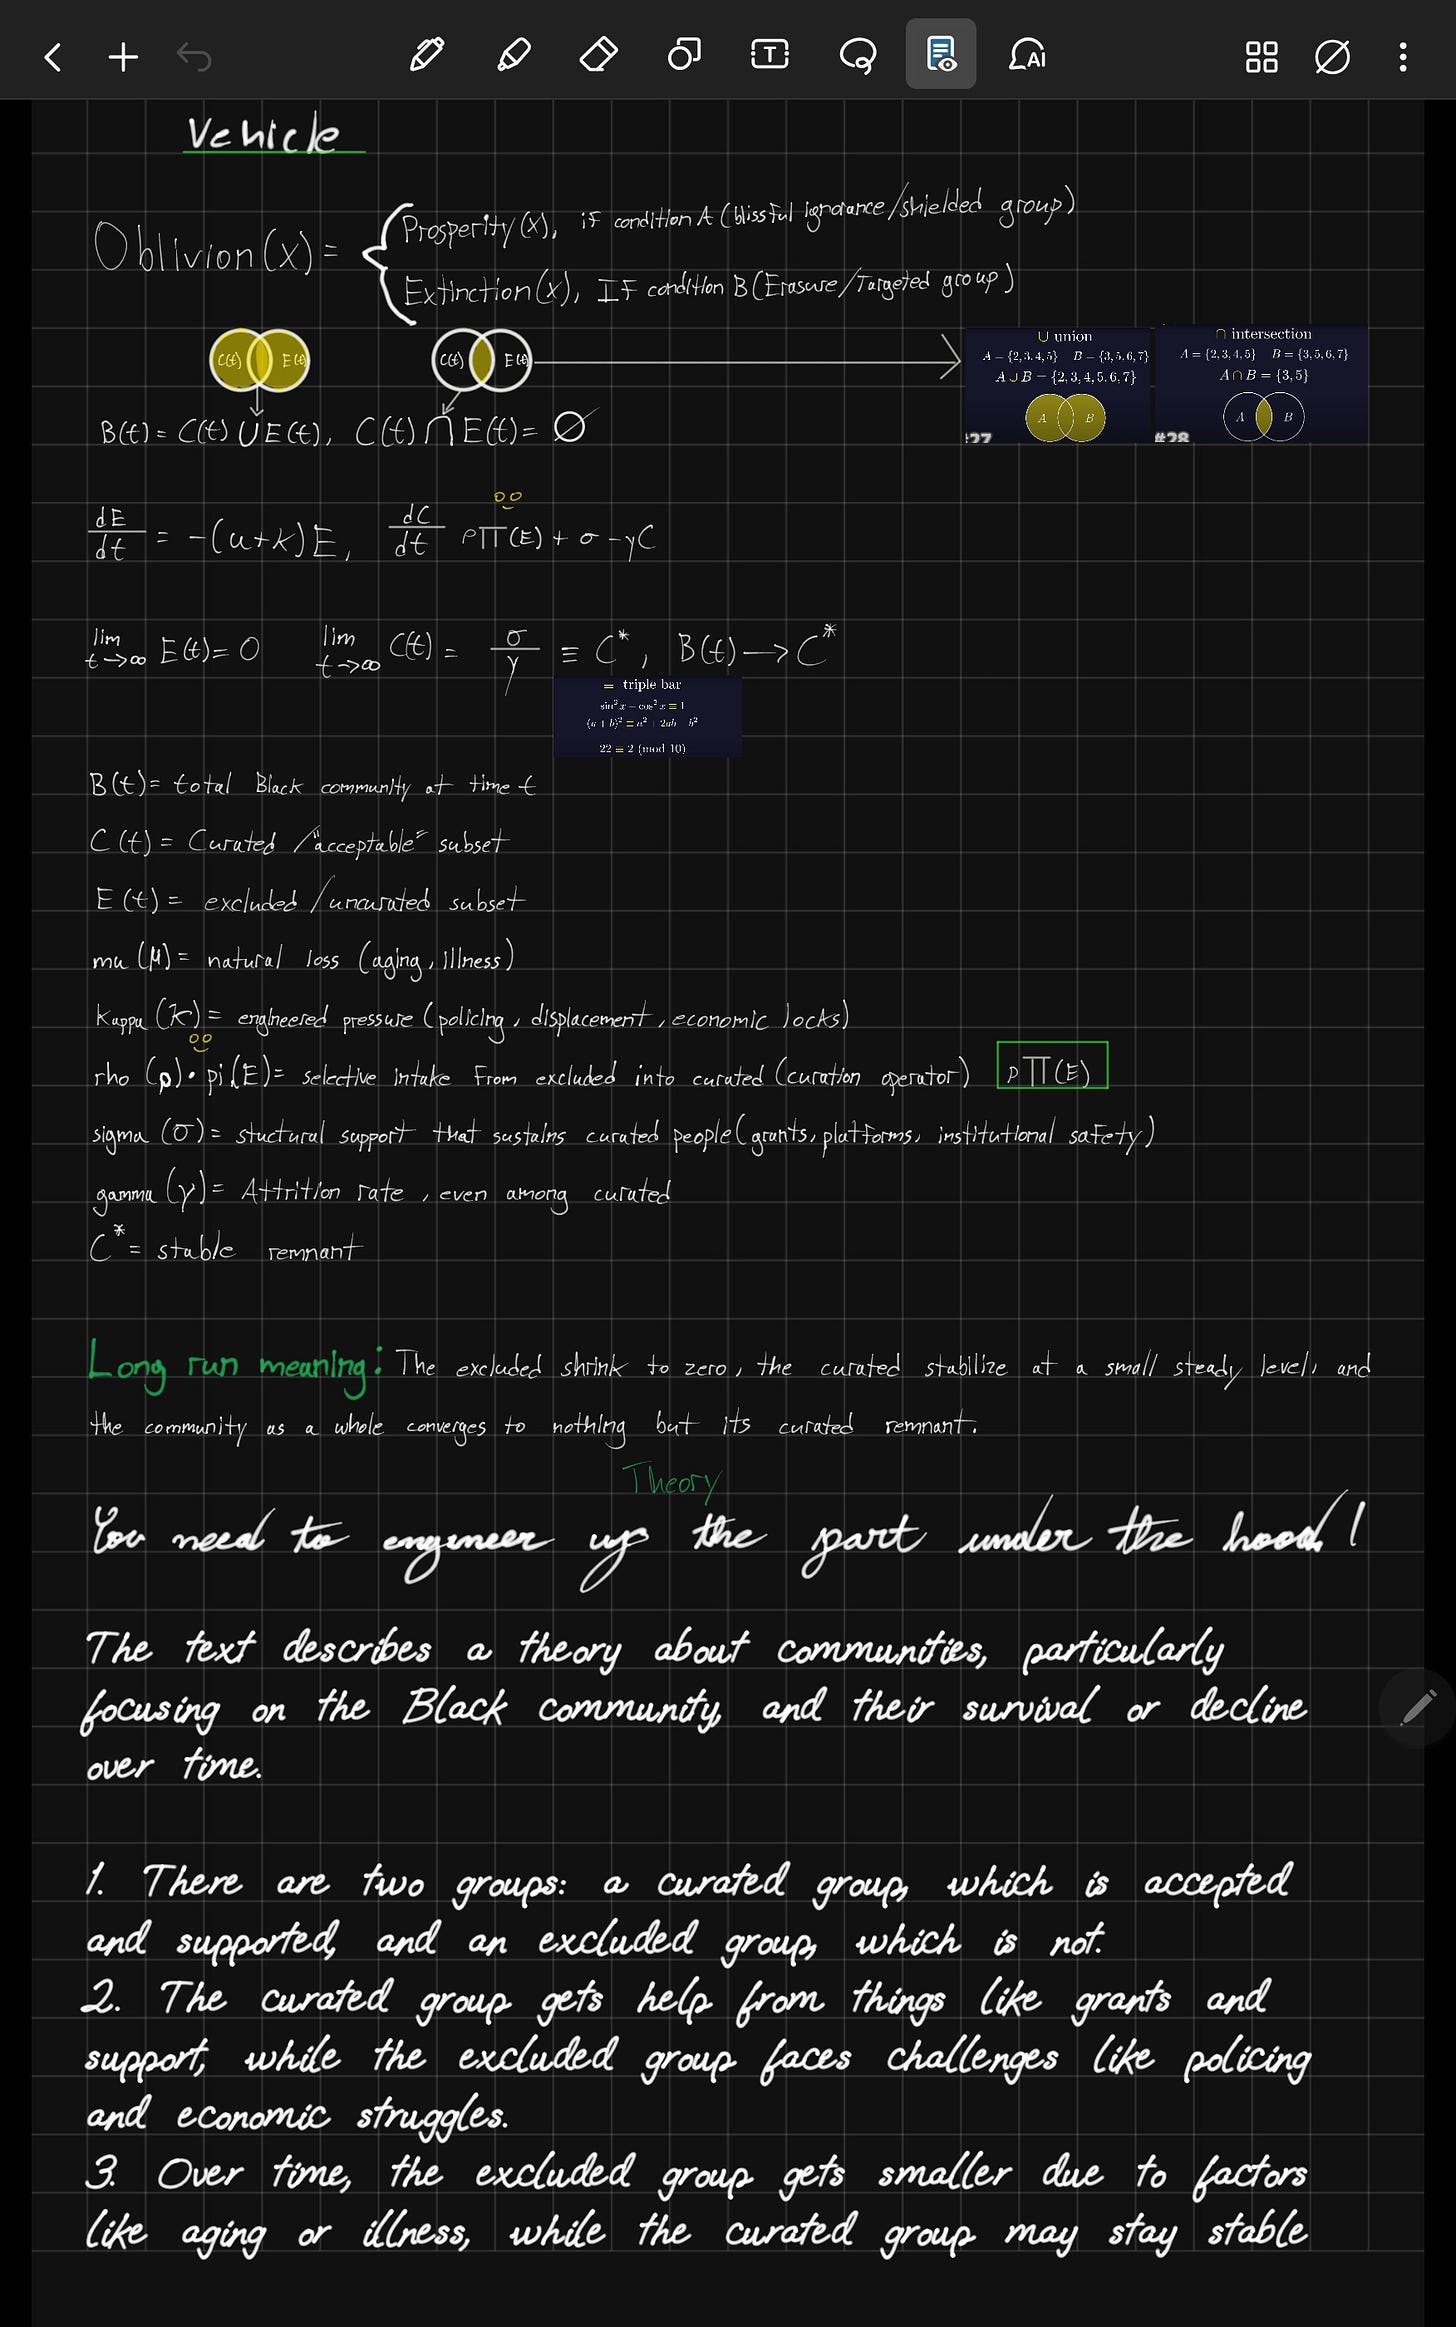 Vehicle
Oblivion(x) = { Prosperity(x), if condition A (blissful ignorance/shielded group)
Extinction(x), IF condition B (Erasure/Targeted group)
C(t) E(t) C(t) E(t)
∪ union
A = {2,3,4,5} B = {3,5,6,7}
A ∪ B = {2,3,4,5,6,7}
A B
#27
∩ intersection
A = {2,3,4,5} B = {3,5,6,7}
A ∩ B = {3,5}
A B
#28
B(t) = C(t) ∪ E(t), C(t) ∩ E(t) = ∅
dE/dt = -(u+k)E, dC/dt ρΠ(E) + σ - γC
lim t→∞ E(t) = 0 lim t→∞ C(t) = σ/γ ≡ C*, B(t) → C*
≡ triple bar
22 ≡ 2 (mod 10)
B(t) = total Black community at time t
C(t) = Curated /"acceptable" subset
E(t) = excluded /uncurated subset
mu (μ) = natural loss (aging, illness)
kappa (k) = engineered pressure (policing, displacement, economic locks)
rho (ρ) • pi(E) = selective intake from excluded into curated (curation operator) ρΠ(E)
sigma (σ) = stuctural support that sustains curated people (grants, platforms, institutional safety)
gamma (γ) = Attrition rate, even among curated
C* = stable remnant
Long run meaning: The excluded shrink to zero, the curated stabilize at a small steady level, and
the community as a whole converges to nothing but its curated remnant.
Theory
You need to engineer up the part under the hood!
The text describes a theory about communities, particularly
focusing on the Black community, and their survival or decline
over time.
1. There are two groups: a curated group, which is accepted
and supported, and an excluded group, which is not.
2. The curated group gets help from things like grants and
support, while the excluded group faces challenges like policing
and economic struggles.
3. Over time, the excluded group gets smaller due to factors
like aging or illness, while the curated group may stay stable